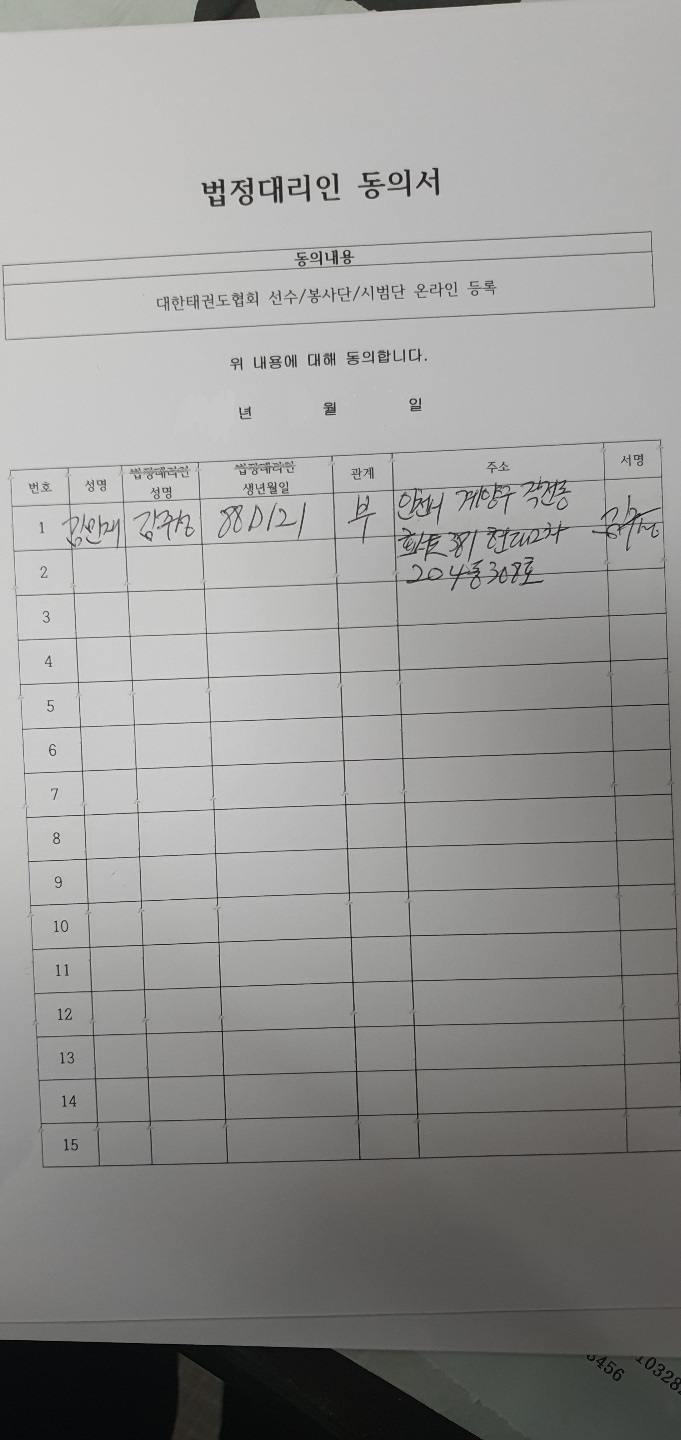 법정대리인 동의서
동의내용
대한태권도협회 선수/봉사단/시범단 온라인 등록
위 내용에 대해 동의합니다.
년 월 일
번호 성명 법정대리인 성명 법정대리인 생년월일 관계 주소 서명
1 880121 부 계양구
2 204동 308호
3
4
5
6
7
8
9
10
11
12
13
14
15
3456